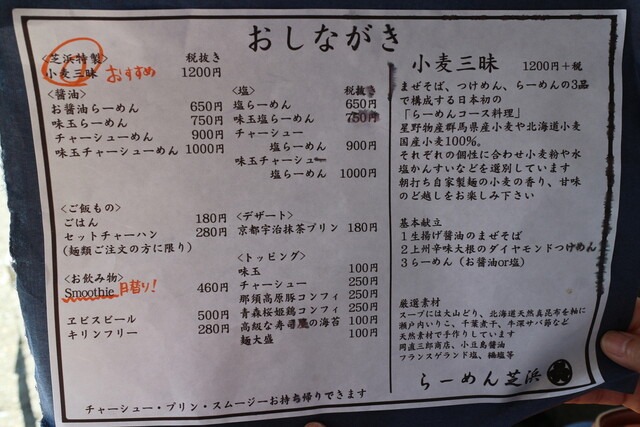 おしながき
<芝浜特製> 税抜き
小麦三昧 おすすめ 1200円
<醤油>
お醤油らーめん 650円
味玉らーめん 750円
チャーシューめん 900円
味玉チャーシューめん 1000円
<塩> 税抜き
塩らーめん 650円
味玉塩らーめん 750円
チャーシュー
塩らーめん 900円
味玉チャーシュー
塩らーめん 1000円
<ご飯もの>
ごはん 180円
セットチャーハン 280円
(麺類ご注文の方に限り)
<デザート>
京都宇治抹茶プリン 180円
<お飲み物>
Smoothie 日替り! 460円
ヱビスビール 500円
キリンフリー 280円
<トッピング>
味玉 100円
チャーシュー 250円
那須高原豚コンフィ 250円
青森桜姫鶏コンフィ 250円
高級な寿司屋の海苔 100円
麺大盛 100円
チャーシュー・プリン・スムージーお持ち帰りできます
小麦三昧 1200円+税
まぜそば、つけめん、らーめんの3品
で構成する日本初の
「らーめんコース料理」
星野物産群馬県産小麦や北海道小麦
国産小麦100%。
それぞれの個性に合わせ小麦粉や水
塩かんすいなどを選別しています
朝打ち自家製麺の小麦の香り、甘味
のど越しをお楽しみ下さい
基本献立
1生揚げ醤油のまぜそば
2上州辛味大根のダイヤモンドつけめん
3らーめん(お醤油or塩)
厳選素材
スープには大山どり、北海道天然真昆布を軸に
瀬戸内いりこ、千葉煮干、牛深サバ節など
天然素材で手作りしています
岡直三郎商店、小豆島醤油
フランスゲランド塩、藻塩等
らーめん芝浜